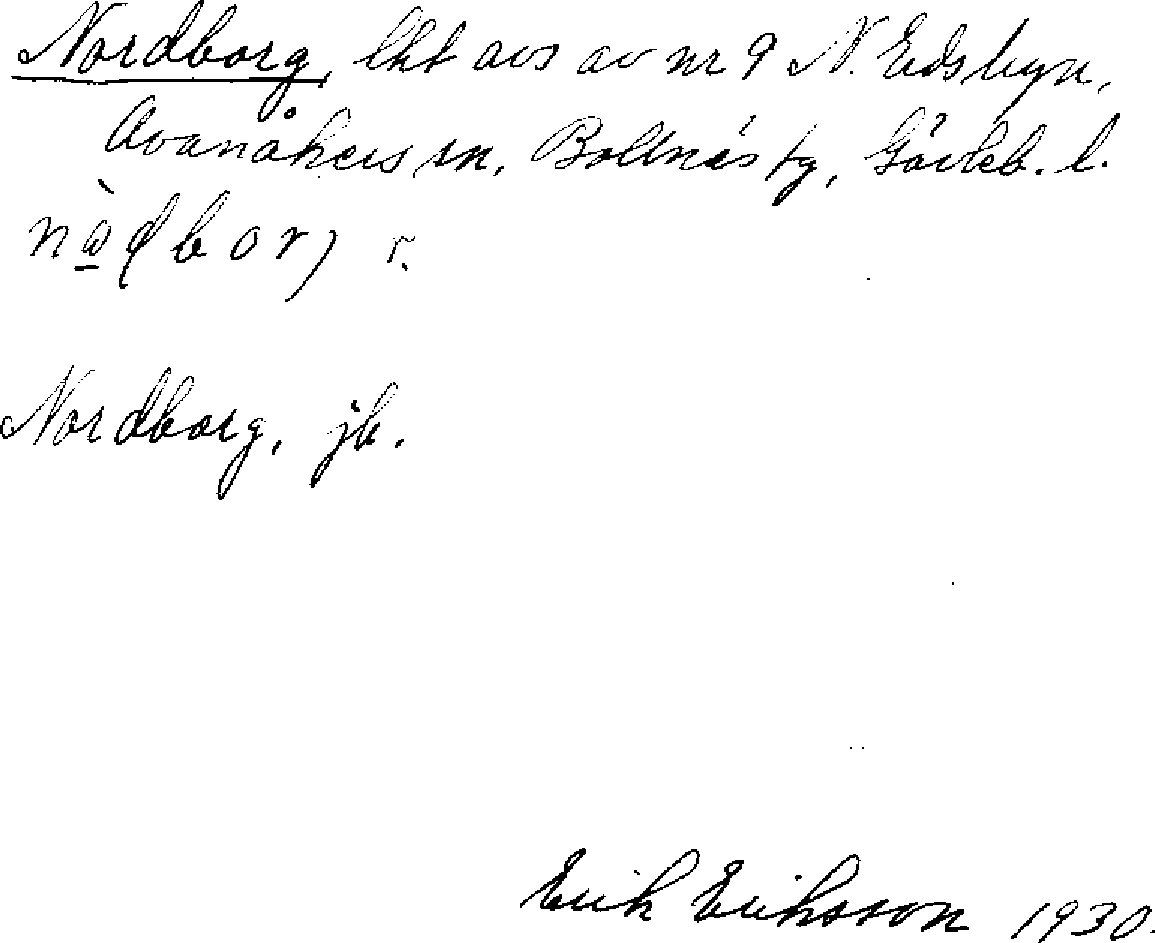 Nordborg, lht avs av nr 9 N. Edsbyn,
Ovanåkers sn, Bollnäs tg, Gävleb. l.
nò̱ḍborj r.
Nordborg, jb.
Erik Eriksson 1930.